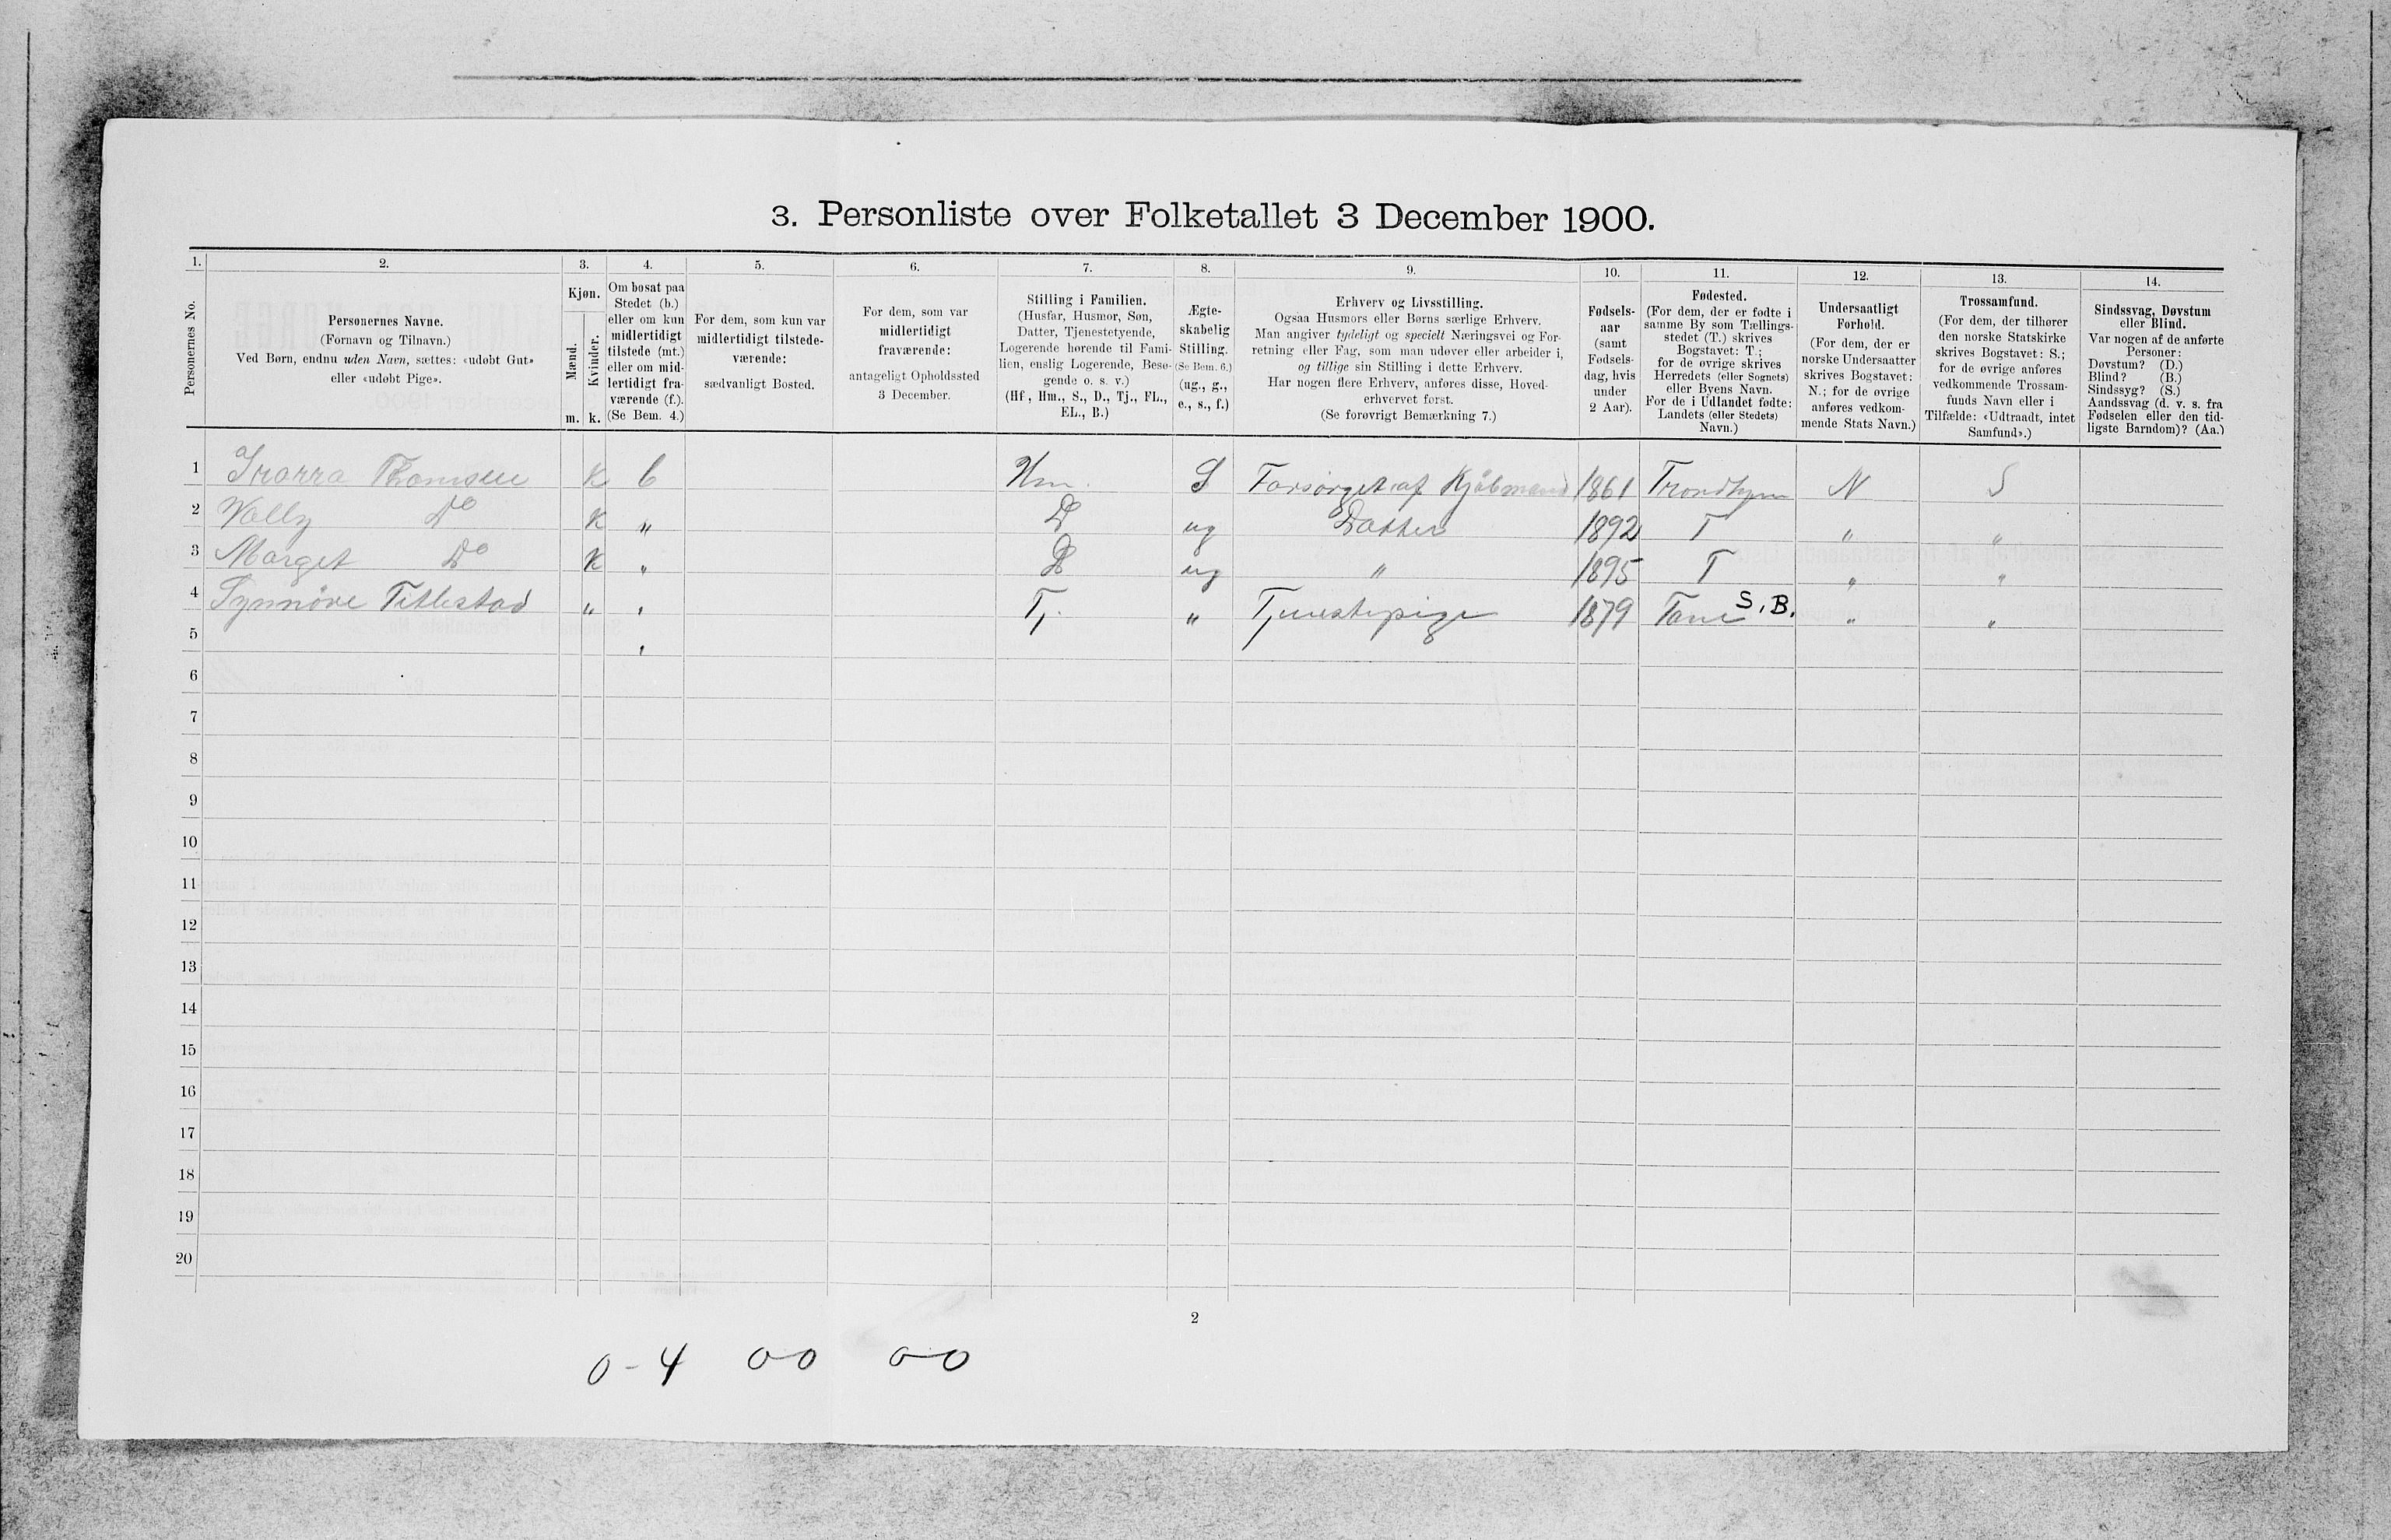 3. Personliste over Folketallet 3 December 1900.
1. 2. 3. 4. 5. 6. 7. 8. 9. 10. 11. 12. 13. 14.
Personernes No.
Personernes Navne.
(Fornavn og Tilnavn.)
Ved Børn, endnu uden Navn, sættes: «udøbt Gut»
eller «udøbt Pige».
Kjøn.
Mænd.
Kvinder.
m. k.
Om bosat paa
Stedet (b.)
eller om kun
midlertidigt
tilstede (mt.)
eller om mid-
lertidigt fra-
værende (f.).
(Se Bem. 4.)
For dem, som kun var
midlertidigt tilstede-
værende:
sædvanligt Bosted.
For dem, som var
midlertidigt
fraværende:
antageligt Opholdssted
3 December.
Stilling i Familien.
(Husfar, Husmor, Søn,
Datter, Tjenestetyende,
Logerende hørende til Fami-
lien, enslig Logerende, Besø-
gende o. s. v.)
(Hf, Hm., S., D., Tj., FL.,
EL., B.)
Ægte-
skabelig
Stilling.
(Se Bem. 6.)
(ug., g.,
e., s., f.)
Erhverv og Livsstilling.
Ogsaa Husmors eller Børns særlige Erhverv.
Man angiver tydeligt og specielt Næringsvei og For-
retning eller Fag, som man udøver eller arbeider i,
og tillige sin Stilling i dette Erhverv.
Har nogen flere Erhverv, anføres disse, Hoved-
erhvervet først.
(Se forøvrigt Bemærkning 7.)
Fødsels-
aar
(samt
Fødsels-
dag, hvis
under
2 Aar).
Fødested.
(For dem, der er fødte i
samme By som Tællings-
stedet (T.) skrives
Bogstavet: T.;
for de øvrige skrives
Herredets (eller Sognets)
eller Byens Navn.
For de i Udlandet fødte:
Landets (eller Stedets)
Navn.)
Undersaatligt
Forhold.
(For dem, der er
norske Undersaatter
skrives Bogstavet:
N.; for de øvrige
anføres vedkom-
mende Stats Navn.)
Trossamfund.
(For dem, der tilhører
den norske Statskirke
skrives Bogstavet: S.;
for de øvrige anføres
vedkommende Trossam-
funds Navn eller i
Tilfælde: «Udtraadt, intet
Samfund».)
Sindssvag, Døvstum
eller Blind.
Var nogen af de anførte
Personer:
Døvstum? (D.)
Blind? (B.)
Sindssyg? (S.)
Aandssvag (d. v. s. fra
Fødselen eller den tid-
ligste Barndom)? (Aa.)
1 Thomsen K b Hm. S Forsørget af Kjøbmand 1861 Trondhjem N S
2 Vally Do K " D ug Datter 1892 T " "
3 Marget Do K " D ug " 1895 T " "
4 Synnöve Titlestad " " Tj. " Tjenestepige 1879 Fane S. B. " "
5 "
6
7
8
9
10
11
12
13
14
15
16
17
18
19
20
2
0-4 0-0 0-0